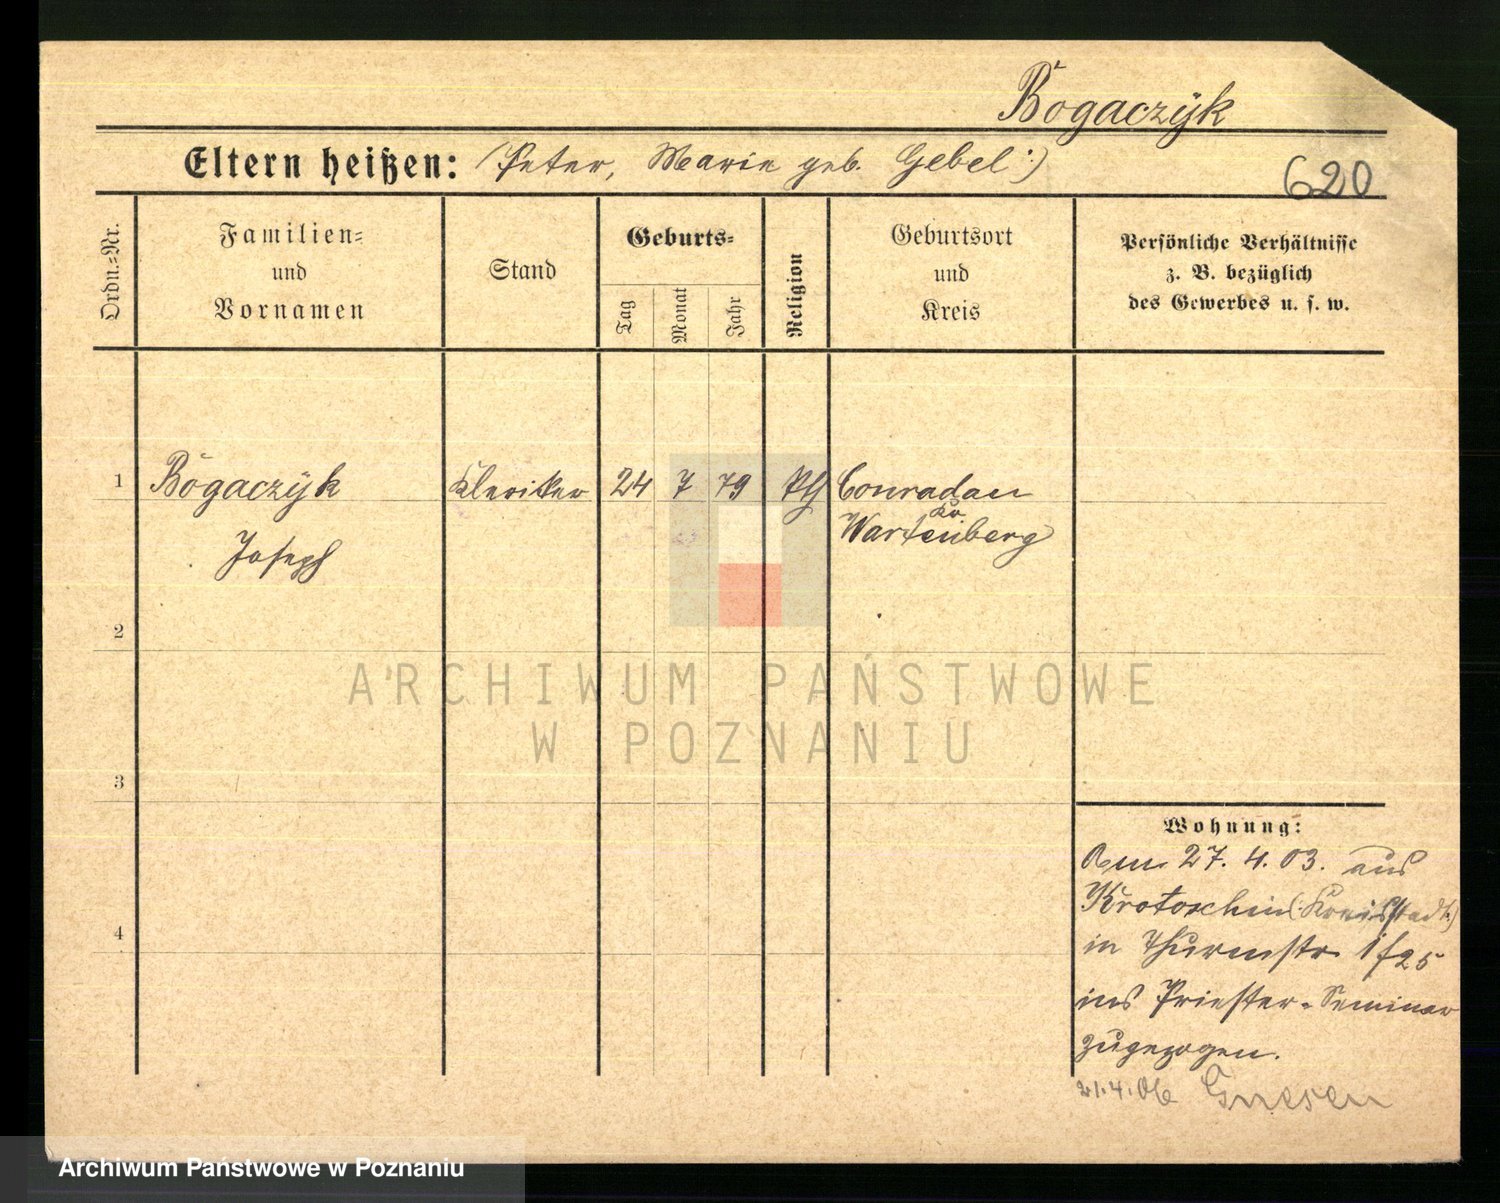 Bogaczÿk
Eltern heißen: (Peter, Marie geb. Gebel :)
620
Ordn.=Nr.
Familien=
und
Vornamen
Stand
Geburts=
Tag
Monat
Jahr
Religion
Geburtsort
und
Kreis
Persönliche Verhältnisse
z. B. bezüglich
des Gewerbes u. s. w.
1
Bogaczÿk
Joseph
Kleriker
24
7
79
Conradau
Kr
Wartenberg
2
3
4
Wohnung:
Am 27. 4. 03. aus
Krotoschin (: Kreisstadt :)
in Thurmstr 1 f 25
ins Priester-Seminar
zugezogen.
21.4.06 Gnesen
ARCHIWUM PAŃSTWOWE
W POZNANIU
Archiwum Państwowe w Poznaniu